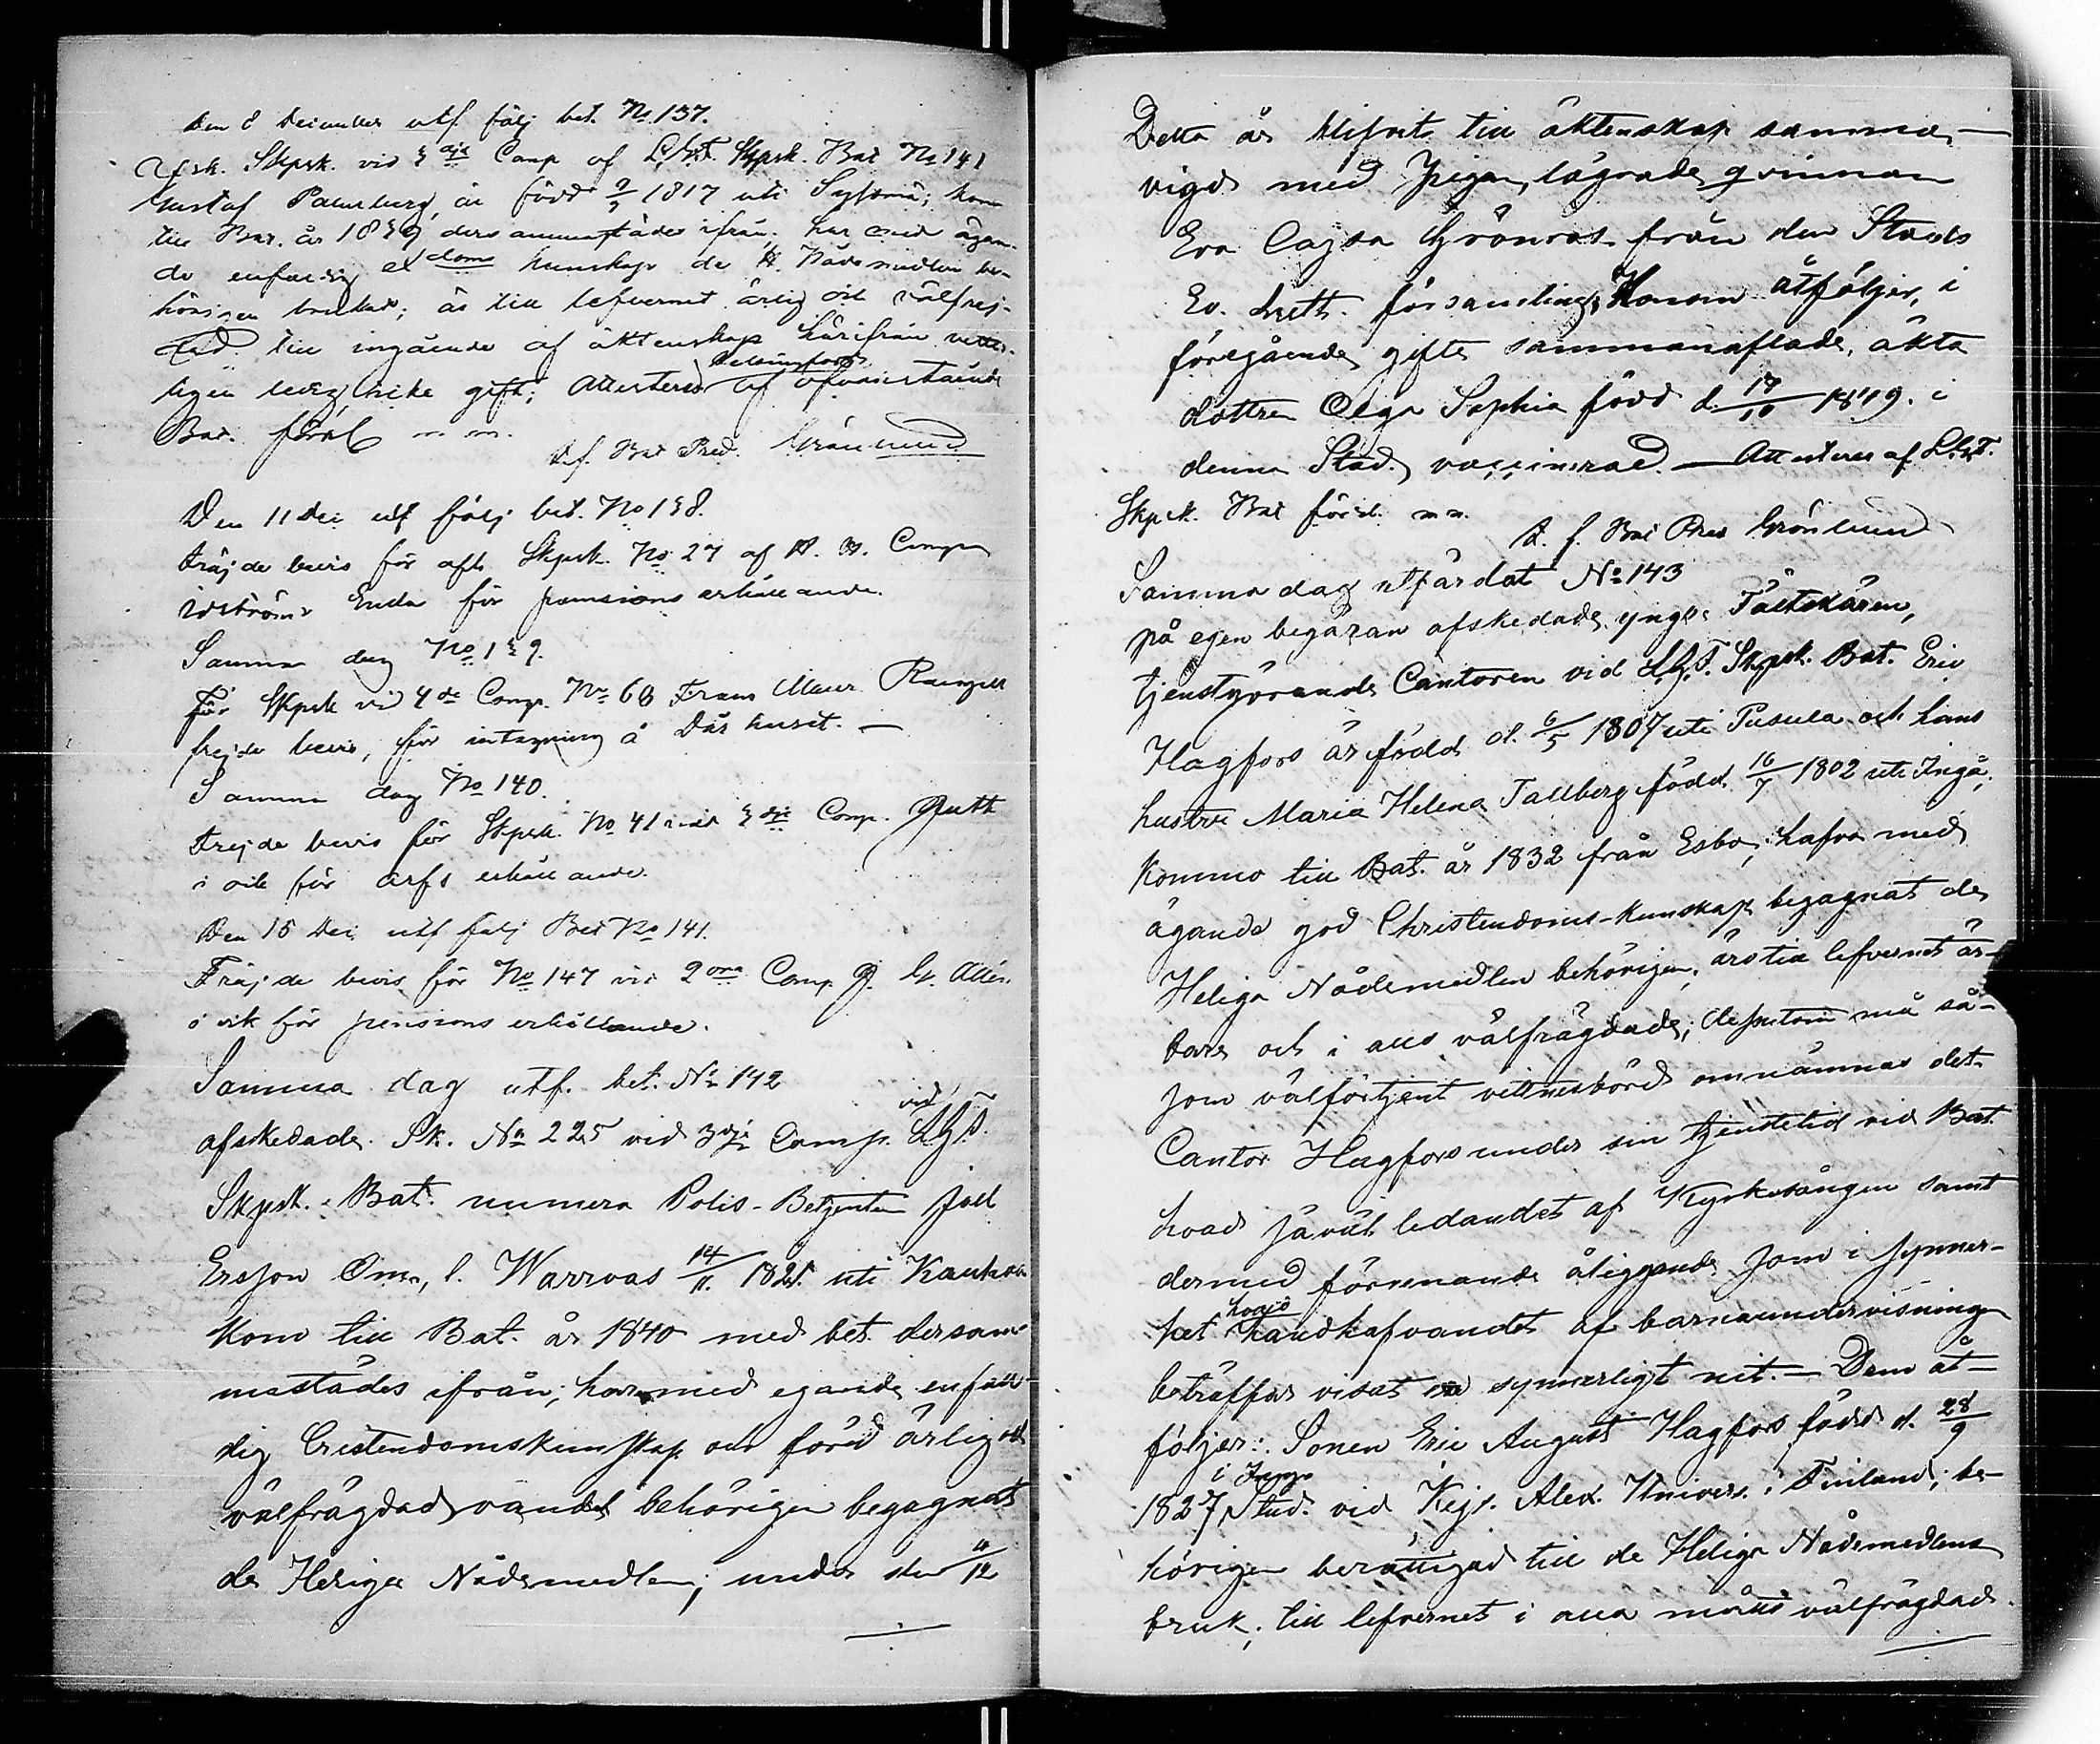 Den 8 December utf följ bet. No 137.
Afsk. Skpsk. vid 3dje Comp af L.G.F. Skpsk. Bat No 141
Gustaf Palmberg, är född 9/9 1817 uti; kom
till Bat. år 1839 dersammastädes ifrån; har med ägan-
de enfaldig doms kunskap de H. Nådemedlen be-
hörigen brukat; är till lefvernet ärlig och välfrej-
dad till ingående af äktenskap härifrån vetter-
ligen ledig, icke gift; Attesteras af ofvanstående
Helsingfors
Bat. förs. m. m.
t.f. Bat Pred. Grönlund
Den 11 Dec utf följ bet. No 138.
Fräjde bevis för afsk. Skpsk. No 27 af Comp
Idströms Enka för pensions erhållande.
Samma dag No 139.
För Skpsk vid 4de Comp. No 68 Frans Maur.
frejde bevis, för intagning å Dårhuset. —
Samma dag No 140.
Frejde bevis för Skpsk. No 41 vid 3dje Comp.
i och för arfs erhållande.
Den 15 Dec utf följ Bet No 141.
Fräjde bevis för No 147 vid 2dra Comp G.
i och för pensions erhållande.
Samma dag utf. bet. No 142
afskedade Sk. No 225 vid 3dje Comp. vid L.G.F.
Skpsk. Bat. numera Polis-Betjenten Joel
Ersson Öm, l. Warrvas 14/11 1821 uti
kom till Bat. år 1840 med bet. dersam-
mastädes ifrån; har med egande enfall-
dig Cristendomskunskap och förd ärlig och
välfrägdad vandel behörigen begagnat
de Heliga Nådemedlen; under den 11/12
Detta år blifvit till äktenskap samman-
vigd med Pigan, lägrade qvinnan
Eva Cajsa Grönros från den Stads
Ev. Luth. församling, Honom åtföljer, i
föregående gifte sammanaflade, äkta
dottren Olga Sophia född d. 17/10 1849. i
denna Stad, vaccinerad. — Attesteras af L.G.F.
Skpsk. Bat förs. m m.
t. f. Bat Pred Grönlund
Samma dag utfärdat No 143
på egen begäran afskedade yngre Fältskären,
tjenstgörande Cantoren vid L.G.F. Skpsk. Bat. Eric
Hagfors är född d. 6/5 1807 uti Pusula och hans
hustru Maria Helena Tallberg född 16/7 1802 uti Ingå,
kommo till Bat. år 1832 från Esbo; hafva med
ägande god Christendoms-kunskap begagnat de
Heliga Nådemedlen behörigen, äro till lefvernet är-
bara och i allo välfrägdade; dessutom må så-
som välförtjent vittnesbörd omnämnas det
Cantor Hagfors under sin tjenstetid vid Bat.
hvad såväl ledandet af Kyrkosången samt
dermed förenande åliggande som i synner-
het hvad handhafvandet af barnaundervisningen
beträffar visat synnerligt nit. — Dem åt-
följer: Sonen Eric August Hagfors född d. 28/9
1827 i Ingo Stud. vid Kejs. Alex. Univers. i Finland; be-
hörigen berättigad till de Heliga Nådemedlens
bruk; till lefvernet i alla måtto välfrägdad.